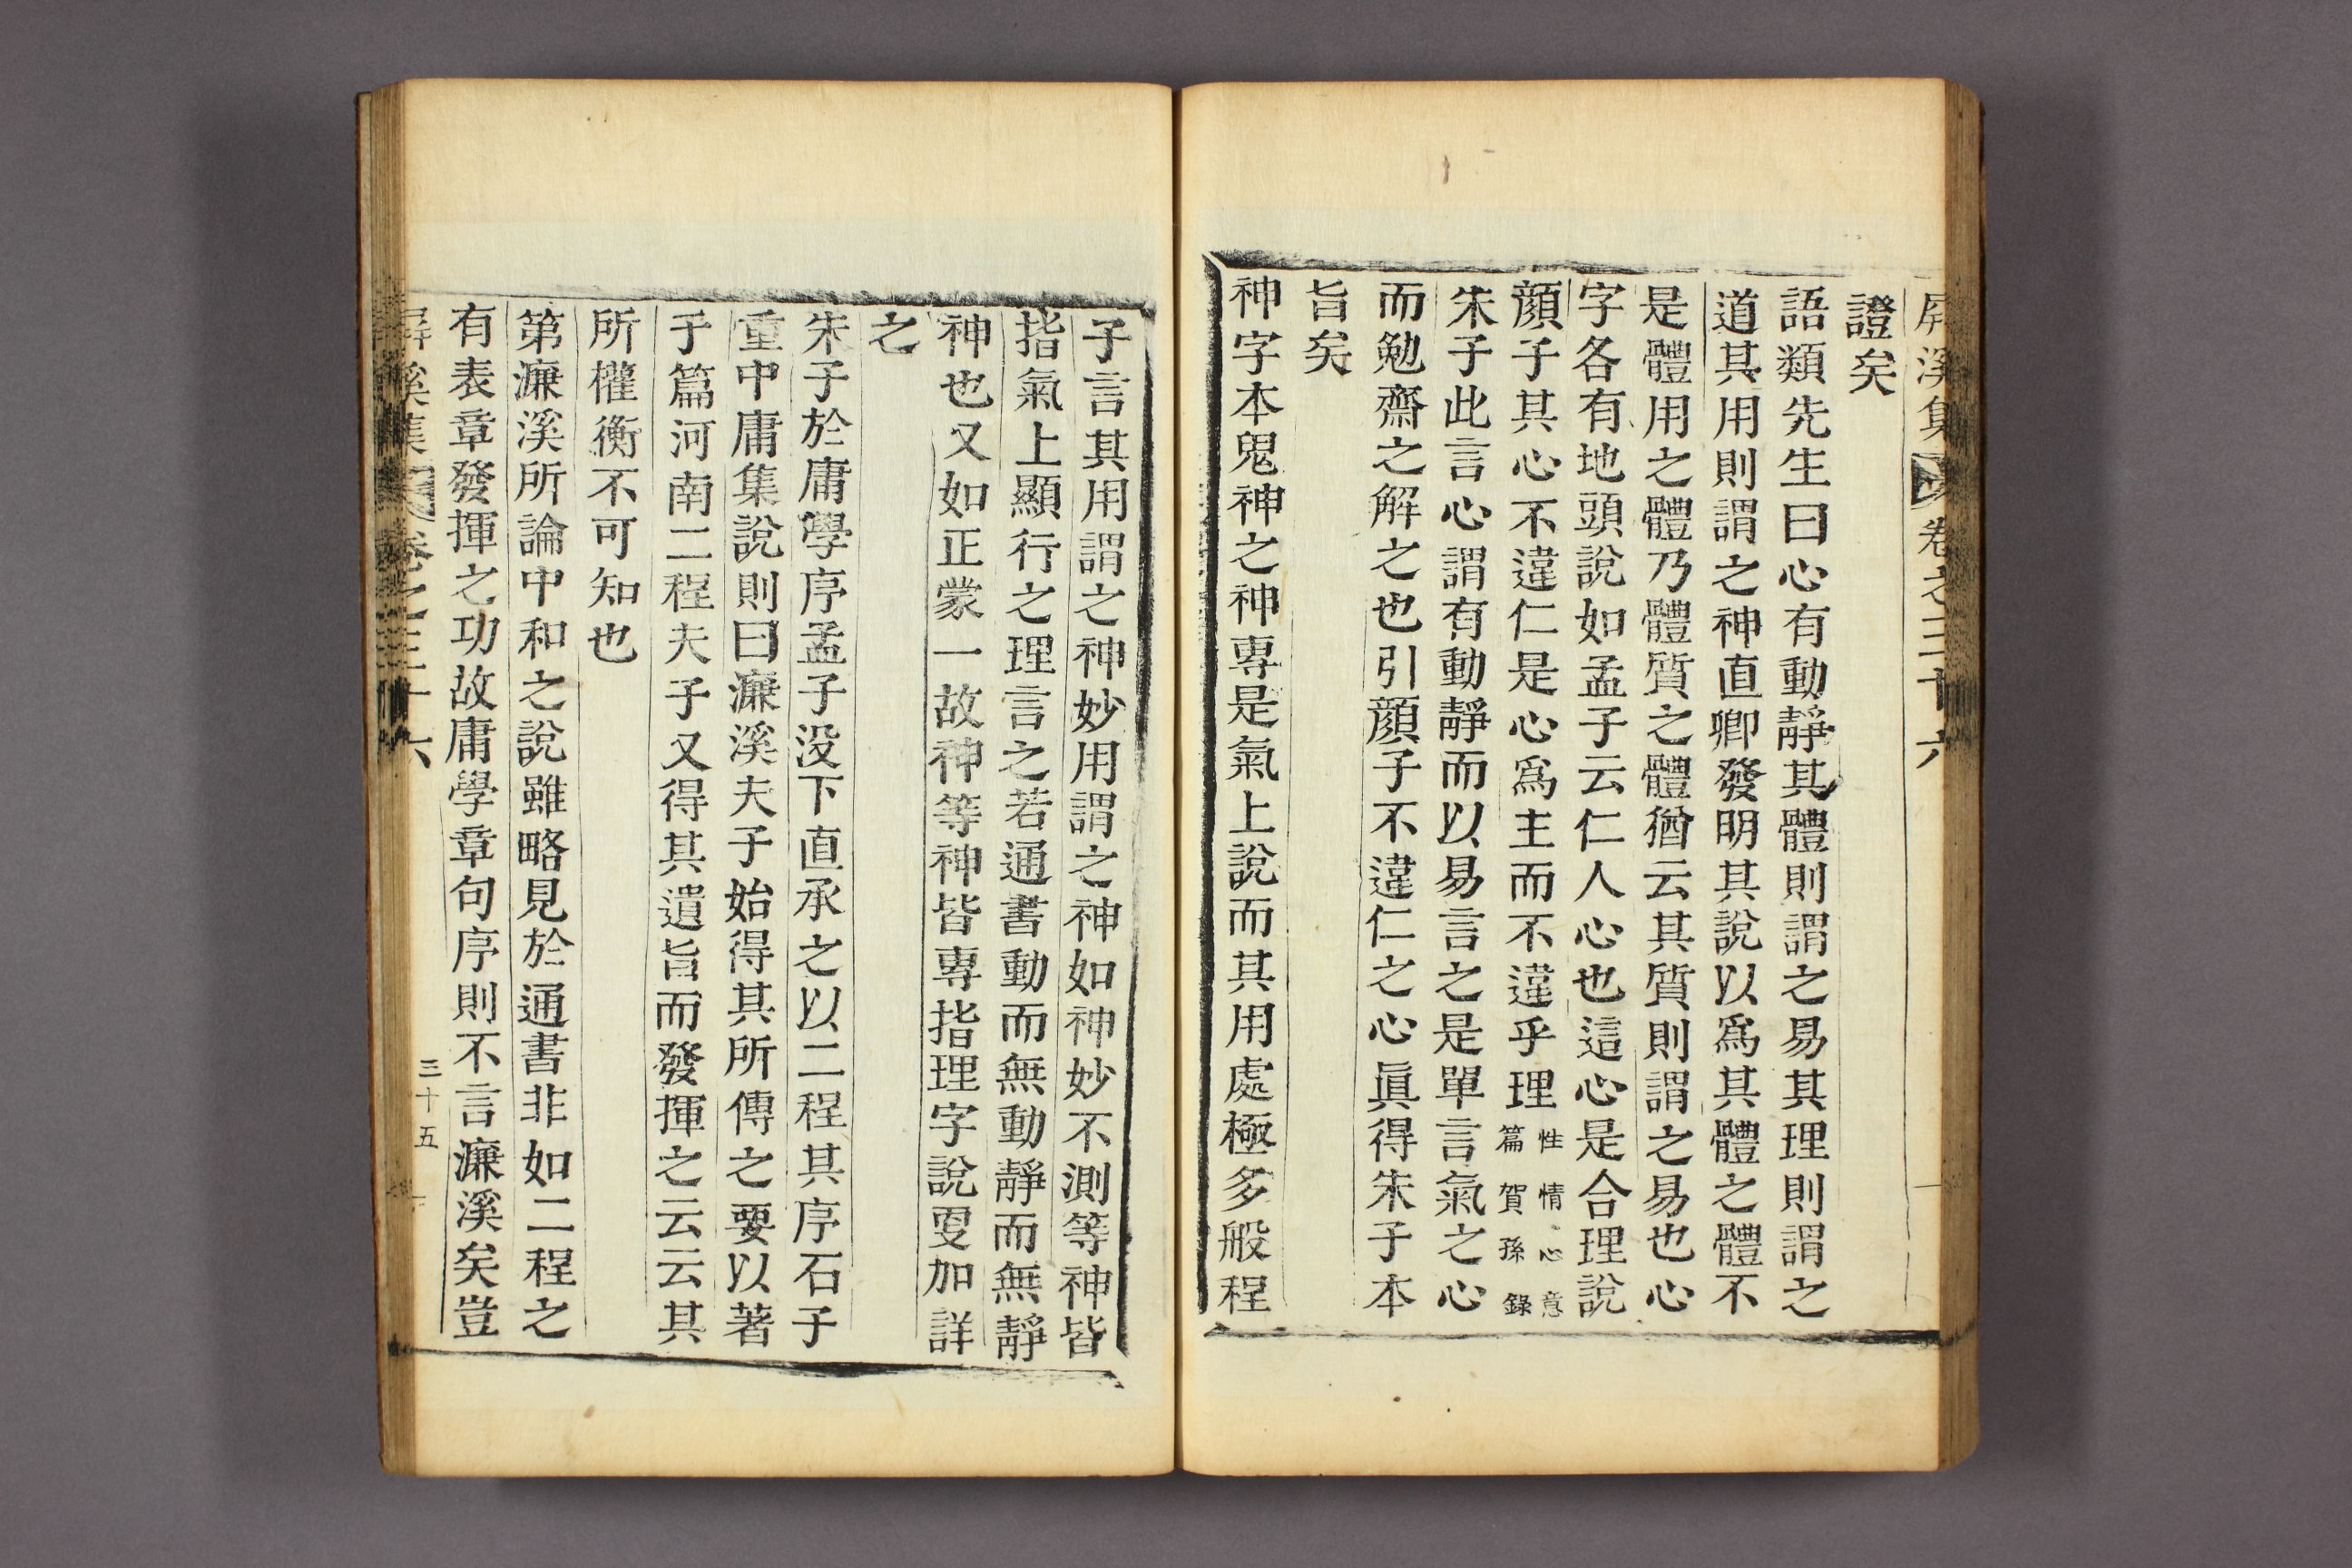 屛溪集 卷之三十六
證矣
語類先生曰心有動靜其體則謂之易其理則謂之
道其用則謂之神直卿發明其說以爲其體之體不
是體用之體乃體質之體猶云其質則謂之易也心
字各有地頭說如孟子云仁人心也這心是合理說
顔子其心不違仁是心爲主而不違乎理性情心意篇賀孫錄
朱子此言心謂有動靜而以易言之是單言氣之心
而勉齋之解之也引顔子不違仁之心眞得朱子本
旨矣
神字本鬼神之神專是氣上說而其用處極多般程
子言其用謂之神妙用謂之神如神妙不測等神皆
指氣上顯行之理言之若通書動而無動靜而無靜
神也又如正蒙一故神等神皆專指理字說更加詳
之
朱子於庸學序孟子沒下直承之以二程其序石子
重中庸集說則曰濂溪夫子始得其所傳之要以著
于篇河南二程夫子又得其遺旨而發揮之云云其
所權衡不可知也
第濂溪所論中和之說雖略見於通書非如二程之
有表章發揮之功故庸學章句序則不言濂溪矣豈
屛溪集 卷之三十六 三十五